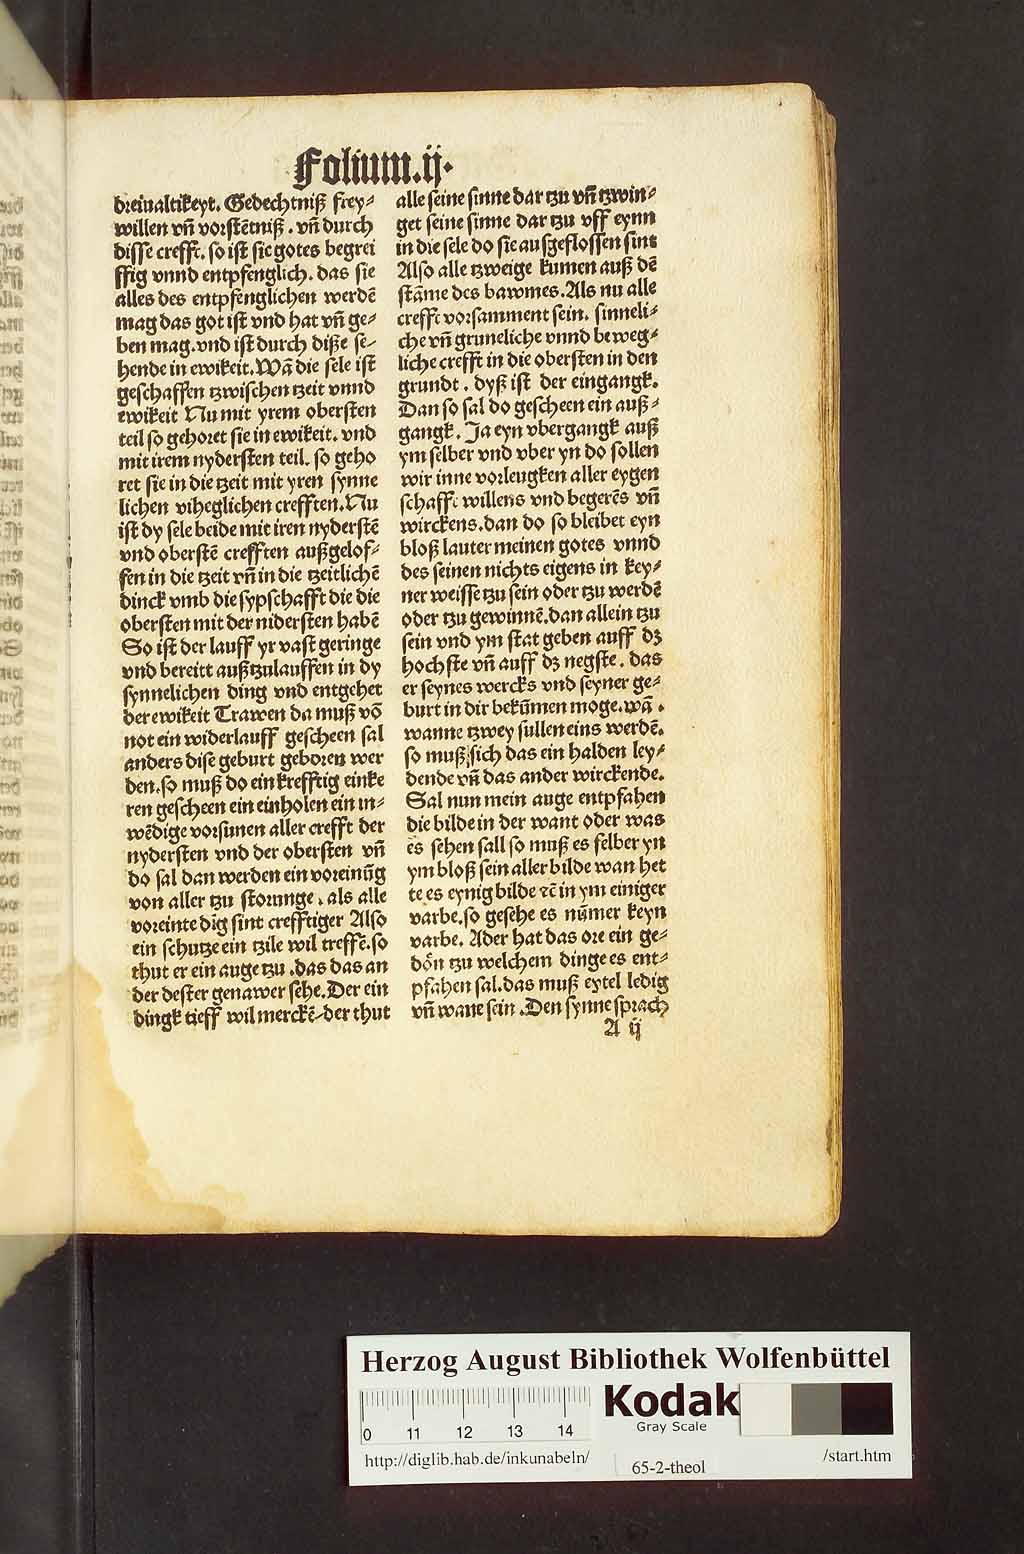 Folium.ij.
dreiualtikeyt. Gedechtniß frey⸗
willen vñ vorstẽtniß. vñ durch
disse crefft. so ist sie gotes begrei
ffig vnnd entpfenglich. das sie
alles des entpfenglichen werdẽ
mag das got ist vnd hat vñ ge⸗
ben mag. vnd ist durch diße se⸗
hende in ewikeit. Wã die sele ist
geschaffen tzwischen tzeit vnnd
ewikeit Nu mit yrem obersten
teil so gehoret sie in ewikeit. vnd
mit irem nydersten teil. so geho
ret sie in die tzeit mit yren synne
lichen viheglichen crefften. Nu
ist dy sele beide mit iren nyderstẽ
vnd oberstẽ crefften außgelof⸗
fen in die tzeit vñ in die tzeitlichẽ
dinck vmb die sypschafft die die
obersten mit der nidersten habẽ
So ist der lauff yr vast geringe
vnd bereitt außtzulauffen in dy
synnelichen ding vnd entgehet
der ewikeit Trawen da muß võ
not ein widerlauff gescheen sal
anders dise geburt geboren wer
den. so muß do ein krefftig einke
ren gescheen ein einholen ein in⸗
wẽdige vorsunen aller crefft der
nydersten vnd der obersten vñ
do sal dan werden ein voreinũg
von aller tzu storunge. als alle
voreinte dĩg sint crefftiger Also
ein schutze ein tzile wil treffẽ. so
thut er ein auge tzu. das das an
der dester genawer sehe. Der ein
dingk tieff wil merckẽ⸗der thut
alle seine sinne dar tzu vñ tzwin⸗
get seine sinne dar tzu vff eynn
in die sele do sie ausgeflossen sint
Also alle tzweige kumen auß dẽ
stãme des bawmes. Als nu alle
crefft vorsamment sein. sinneli⸗
che vñ gruneliche vnnd beweg⸗
liche crefft in die obersten in den
grundt. dyß ist der eingangk.
Dan so sal do gescheen ein auß⸗
gangk. Ja eyn vbergangk auß
ym selber vnd vber yn do sollen
wir inne vorleugken aller eygen
schafft willens vnd begerẽs vñ
wirckens. dan do so bleibet eyn
bloß lauter meinen gotes vnnd
des seinen nichts eigens in key⸗
ner weisse tzu sein oder tzu werdẽ
oder tzu gewinnẽ. dan allein tzu
sein vnd ym stat geben auff dz
hochste vñ auff dz negste. das
er seynes wercks vnd seyner ge⸗
burt in dir bekũmen moge. wã.
wanne tzwey sullen eins werdẽ.
so muß sich das ein halden ley⸗
dende vñ das ander wirckende.
Sal nun mein auge entpfahen
die bilde in der want oder was
es sehen sall so muß es selber yn
ym bloß sein aller bilde wan het
te es eynig bilde ꝛc̃ in ym einiger
varbe. so gesehe es nũmer keyn
varbe. Ader hat das ore ein ge⸗
dõn tzu welchem dinge es ent⸗
pfahen sal. das muß eytel ledig
vñ wane sein. Den synne sprach
A ij
Herzog August Bibliothek Wolfenbüttel
0 11 12 13 14
Kodak
Gray Scale
http://diglib.hab.de/inkunabeln/
65-2-theol
/start.htm